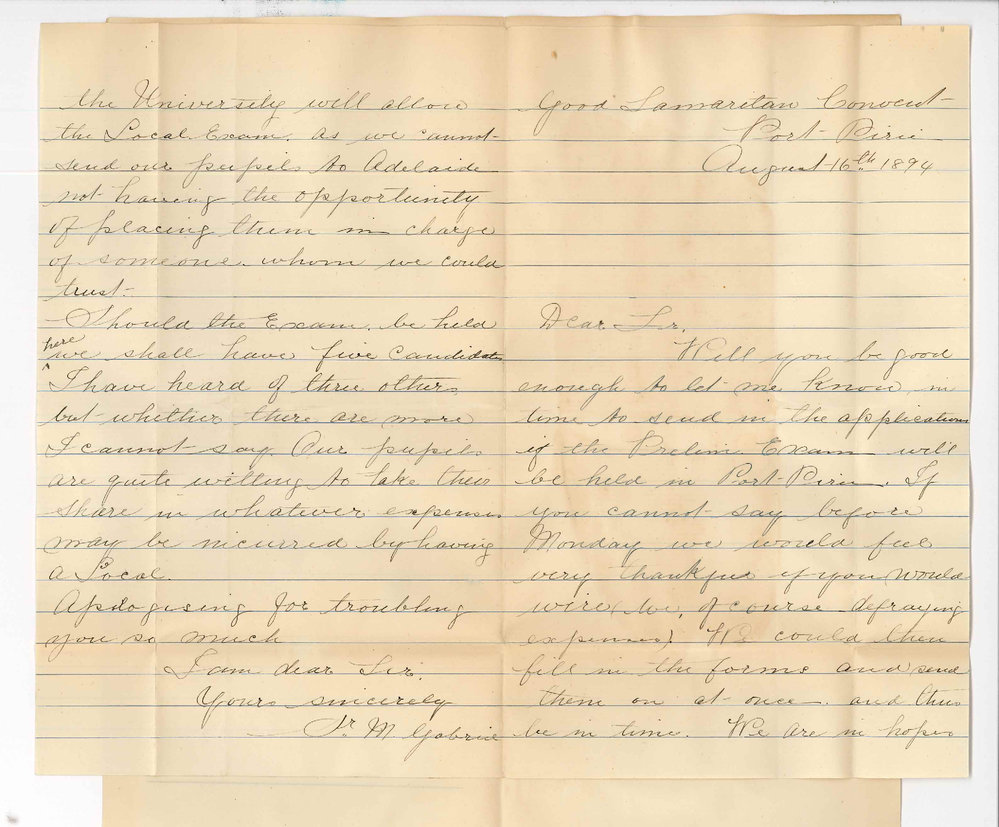 Good Samaritan Convent
Port Pirie
August 16th 1894
Dear Sir,
Will you be good
enough to let me know in
time to send in the applications
if the Prelim Exam will
be held in Port Pirie. If
you cannot say before
Monday we would feel
very thankful if you would
wire (we, of course defraying
expenses). We could then
fill in the forms and send
them on at once and thus
be in time. We are in hopes
the University will allow
the Local Exam. as we cannot
send our pupils to Adelaide
not having the opportunity
of placing them in charge
of someone whom we could
trust.
Should the Exam. be held
here
we shall have five candidates
I have heard of three others
but whether there are more
I cannot say. Our pupils
are quite willing to take their
share in whatever expenses
may be incurred by having
a Local.
Apologising for troubling
you so much
I am dear Sir,
Yours sincerely
Sr. M Gabriel